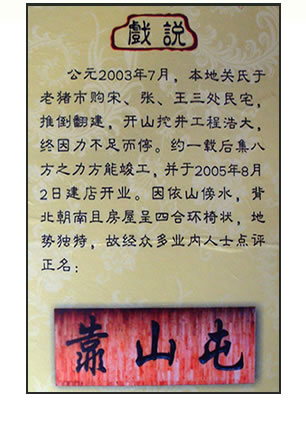 戲説
公元2003年7月，本地关氏于
老猪市购宋、张、王三处民宅，
推倒翻建，开山挖井工程浩大，
终因力不足而停。约一载后集八
方之力方能竣工，并于2005年8月
2日建店开业。因依山傍水，背
北朝南且房屋呈四合环椅状，地
势独特，故经众多业内人士点评
正名：
靠山屯